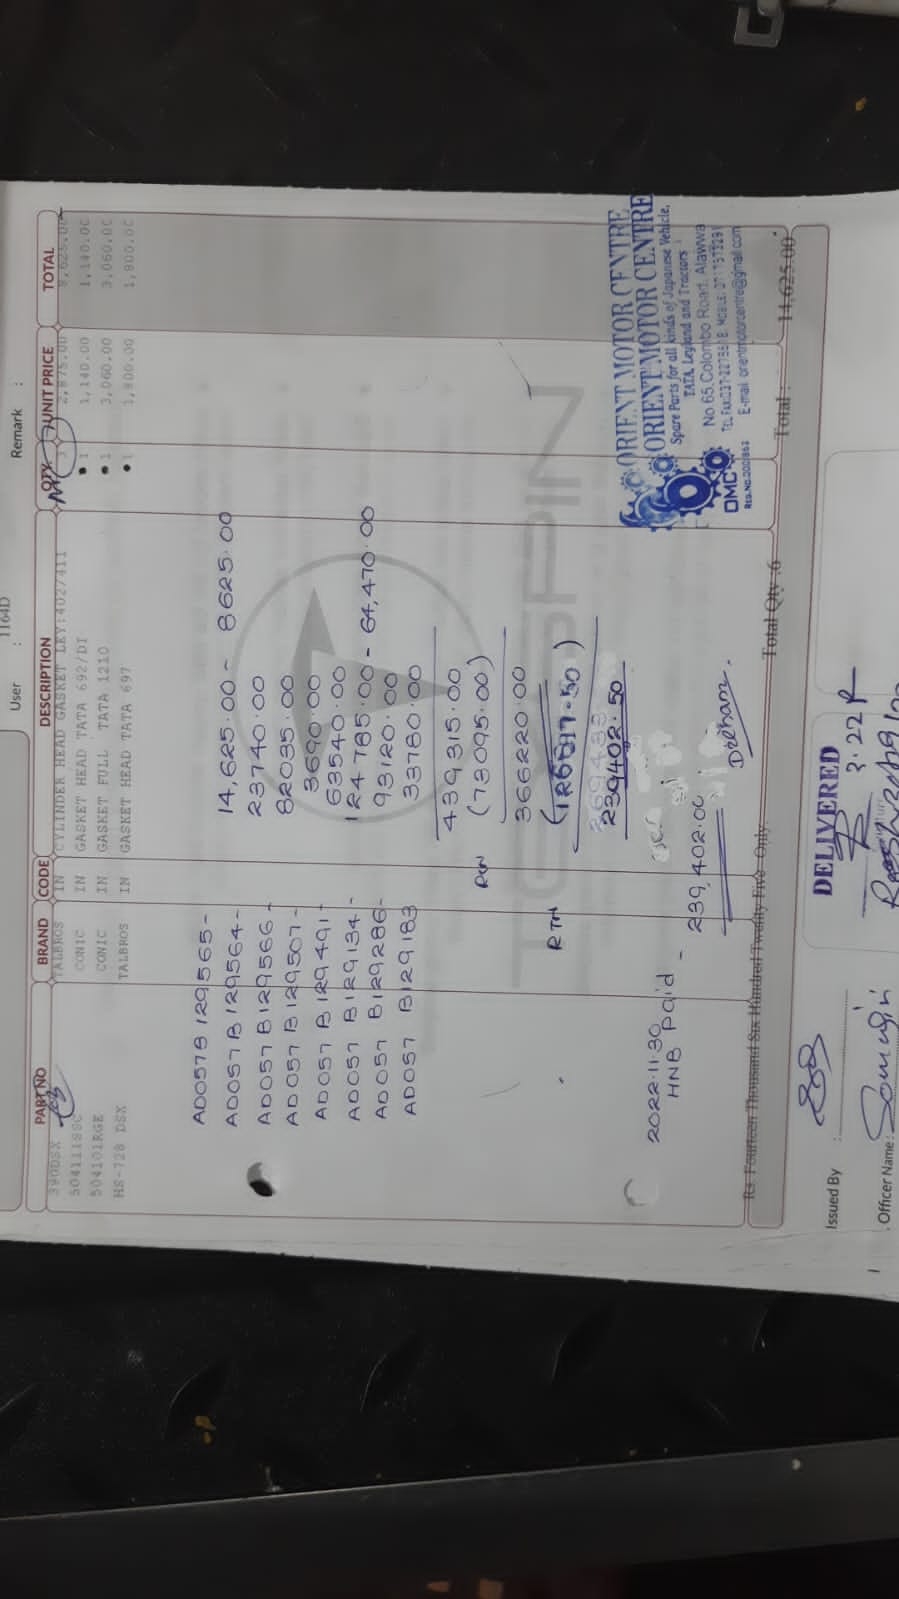 User : 1164D
Remark :
PART NO BRAND CODE DESCRIPTION QTY UNIT PRICE TOTAL
390DSX TALBROS IN CYLINDER HEAD GASKET LEY:402/411 3 2,875.00 8,625.00
504111SSC CONIC IN GASKET HEAD TATA 692/DI 1 1,140.00 1,140.00
504101RGE CONIC IN GASKET FULL TATA 1210 1 3,060.00 3,060.00
HS-728 DSX TALBROS IN GASKET HEAD TATA 697 1 1,800.00 1,800.00
AD057B129565- 14,625.00 - 8625.00
AD057B129564- 23740.00
AD057B129566- 82035.00
AD057B129507- 3690.00
AD057 B129491- 63540.00
AD057 B129134- 124785.00 - 64,470.00
AD057 B129286- 93120.00
AD057 B129183 33780.00
439315.00
(73095.00)
366220.00
RTN
239402.50
TOPPIN
2022.11.30
HNB Paid - 239,402.00
ORIENT MOTOR CENTRE
ORIENT MOTOR CENTRE
Spare Parts for all kinds of Japanese Vehicle,
TATA, Leyland and Tractors
No 65, Colombo Road, Alawwa
E-mail orientmotorcentre@gmail.com
OMC
Rs. Fourteen Thousand Six Hundred Twenty Five Only Total Qty :6 Total : 14,625.00
DELIVERED
Issued By :
Officer Name :